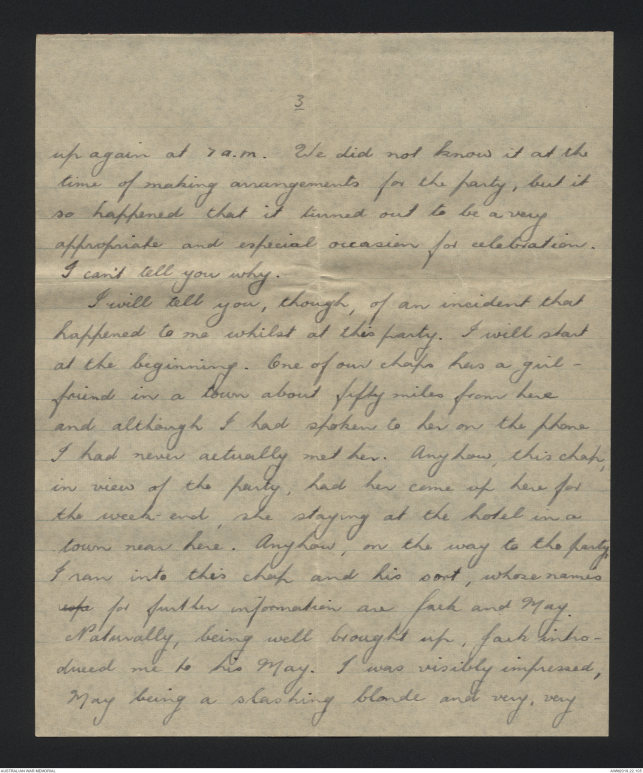 3
up again at 7 a.m. We did not know it at the
time of making arrangements for the party, but it
so happened that it turned out to be a very
appropriate and especial occasion for celebration.
I can't tell you why.
I will tell you, though, of an incident that
happened to me whilst at this party. I will start
at the beginning. One of our chaps has a girl-
friend in a town about fifty miles from here
and although I had spoken to her on the phone
I had never actually met her. Anyhow, this chap,
in view of the party, had her come up here for
the week-end, she staying at the hotel in a
town near here. Anyhow, on the way to the party,
I ran into this chap and his sort, whose names
for further information are Jack and May.
Naturally, being well brought up, Jack intro-
duced me to his May. I was visibly impressed,
May being a slashing blonde and very, very
AUSTRALIAN WAR MEMORIAL